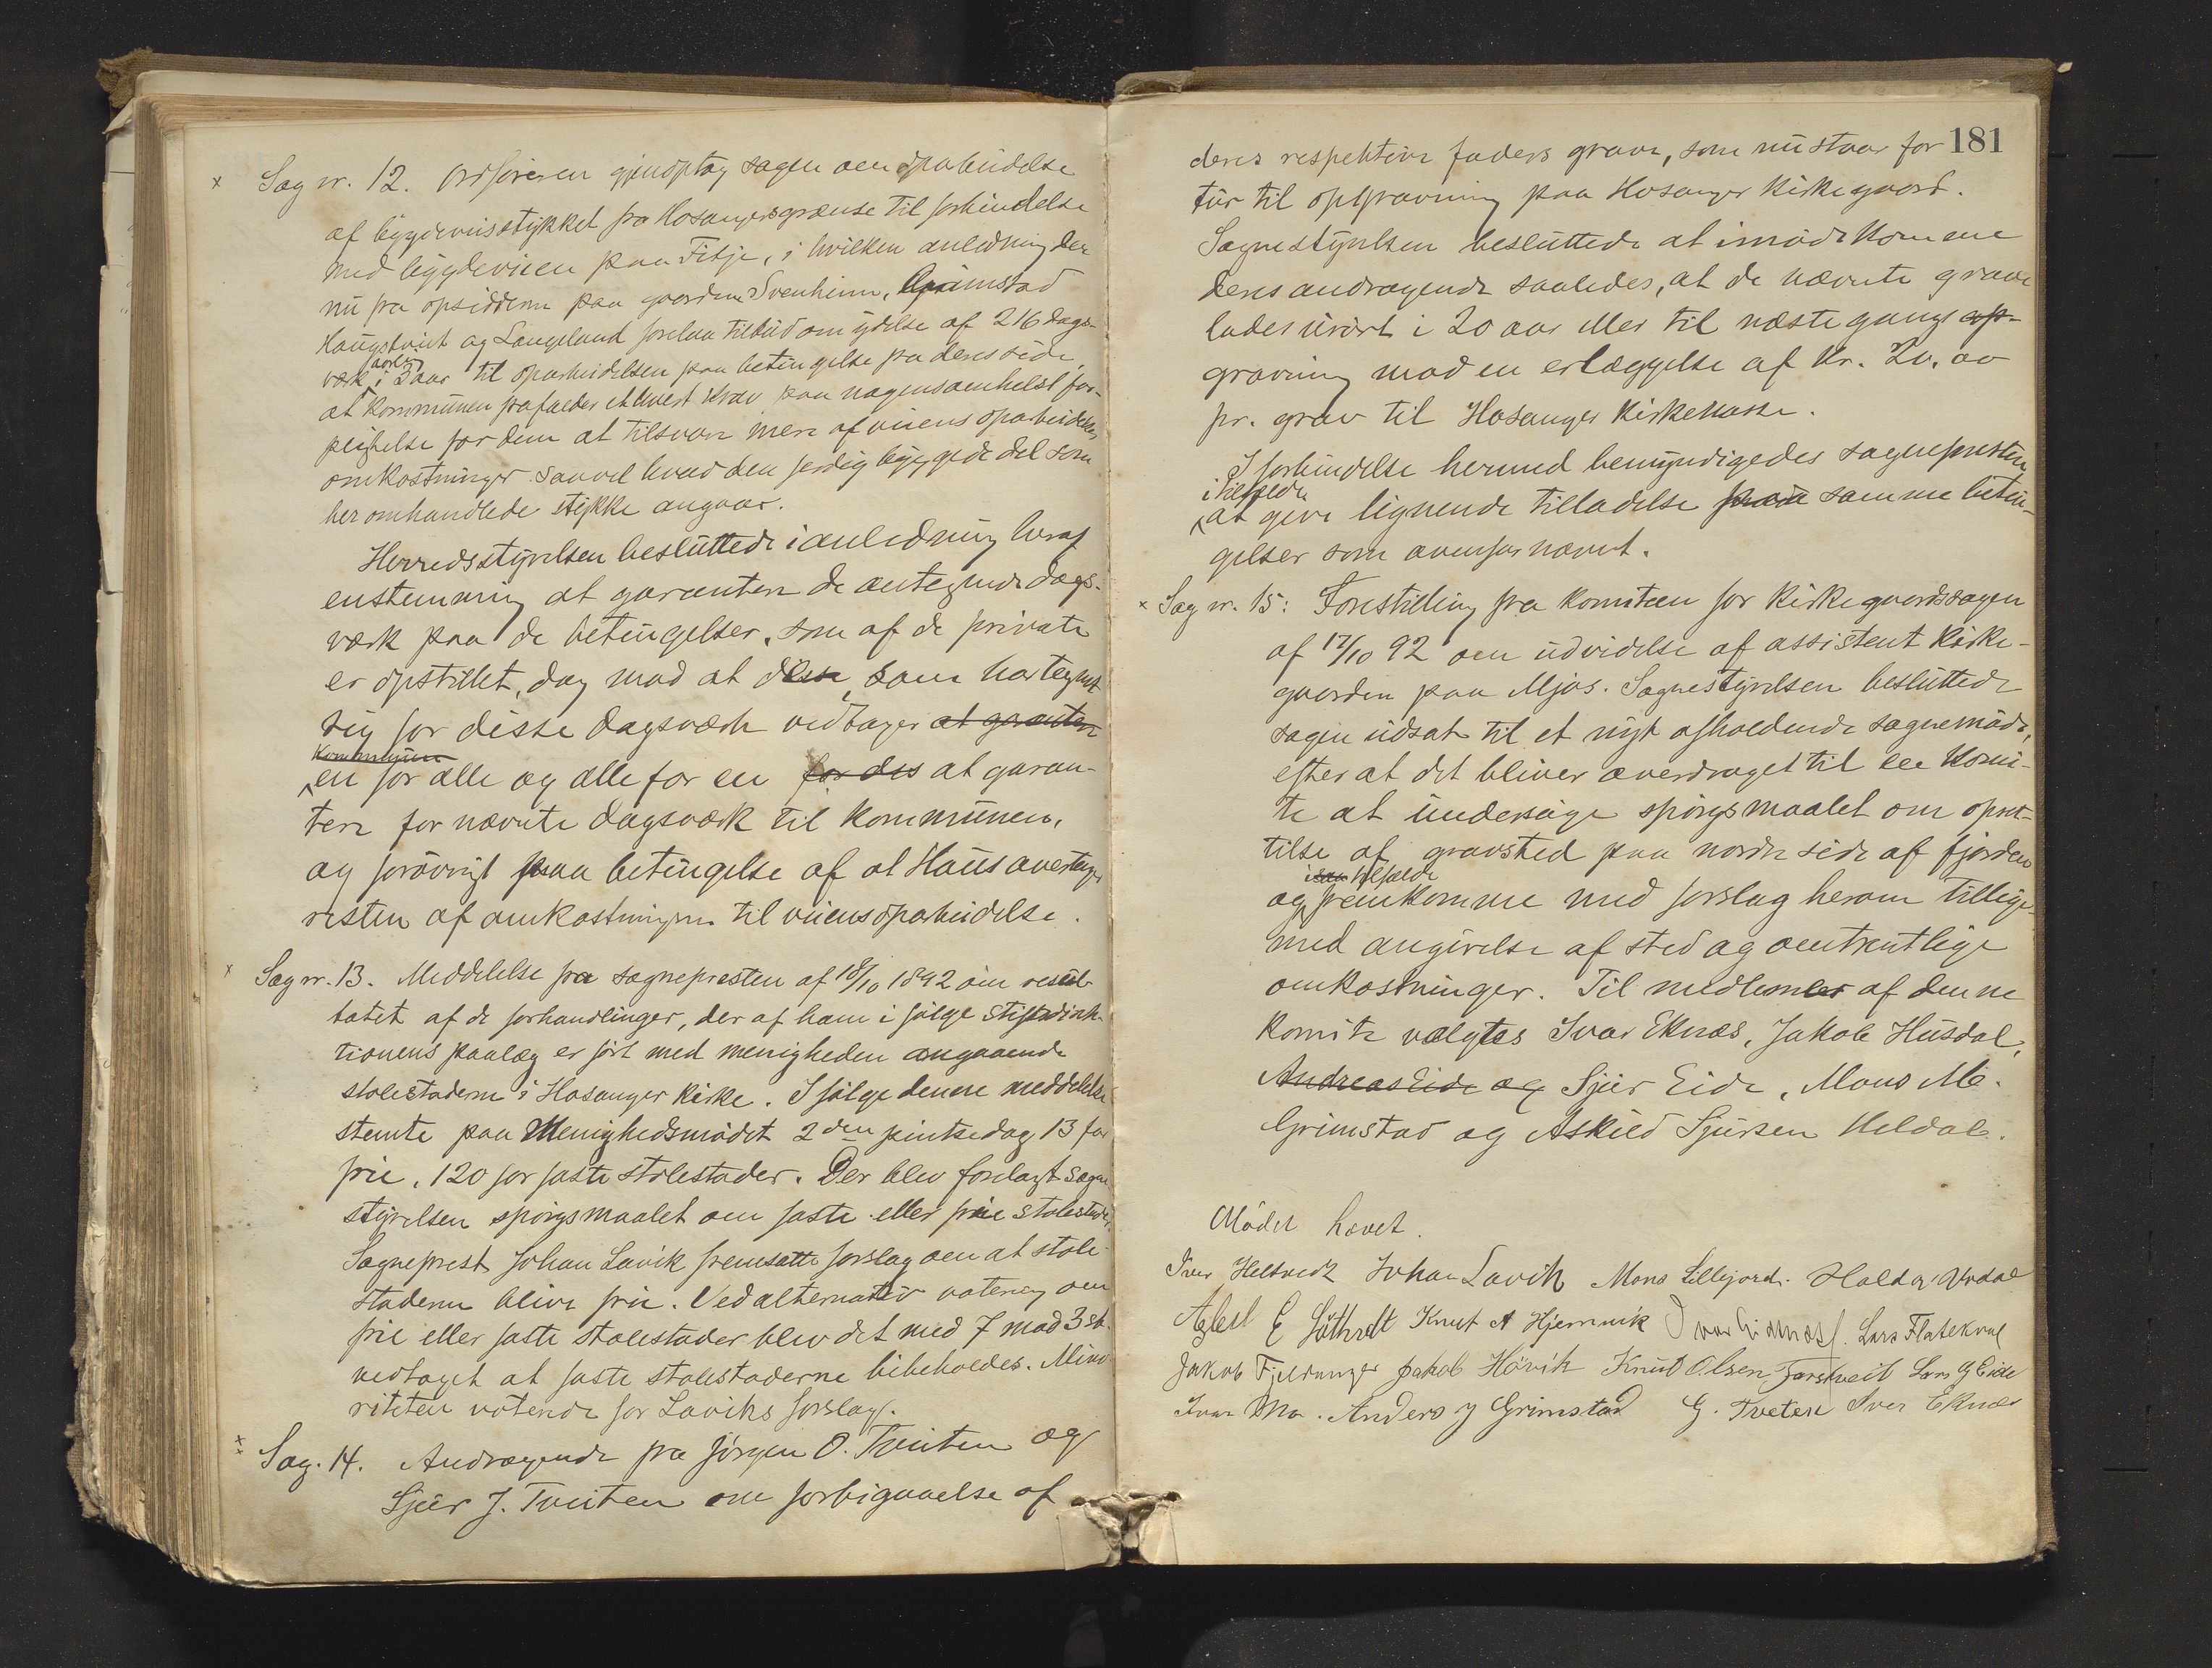 x Sag nr. 12. Ordføreren gjenoptog sagen om oparbeidelse
af bygdeveisstykket fra Hosangersgrænse til forbindelse
med bygdeveien paa Titje, i hvilken anledning der
nu fra opsidderne paa gaardene Svenheim, Grimstad
Haugstvedt og Langeland forelaa tilbud om ydelse af 216 dags-
værk i 3 aar til oparbeidelsen paa betingelse fra deres side,
at kommunen frafalder ethvert krav paa nogensomhelst for-
pligtelse for dem at tilsvare mere af veiens oparbeidelses
omkostninger saavel hvad den ferdig byggede del som
her omhandlede stykke angaar.
Herredsstyrelsen besluttede i anledning heraf
enstemmig at garantere de antegnede dags-
værk paa de betingelser, som af de private
er opstillet, dog mod at disse, som har tegnet
sig for disse dagsværk vedtager at garantere
kommunen
en for alle og alle for en for des at garan-
tere for nævnte dagsværk til kommunen,
og forøvrigt paa betingelse af at Haus overtager
resten af omkostningerne til veiens oparbeidelse.
x Sag nr. 13. Meddelelse fra sognepresten af 18/10 1892 om resul-
tatet af de forhandlinger, der af ham i følge stiftsdirek-
tionens paalæg er ført med menigheden angaaende
stolestaderne i Hosanger kirke. I følge denne meddelelse
stemte paa Menighedsmødet 2den pintsedag 13 for
frie, 120 for faste stolestader. Der blev forelagt sogne-
styrelsen spørgsmaalet om faste eller frie stolestader.
Sogneprest Johan Lavik fremsatte forslag om at stole-
staderne blive frie. Ved alternativ votering om
frie eller faste stolestader blev det med 7 mod 3 st.
vedtaget at faste stolestaderne bibeholdes. Mino-
riteten votende for Laviks forslag.
Sag. 14. Andragende fra Jørgen O. Tveiten og
Sjur J. Tveiten om forbigaaelse af
181
deres respektive faders grave, som nu staar for
tur til opgravning paa Hosanger kirkegaard.
Sognestyrelsen besluttede at imødekomme
deres andragende saaledes, at de nævnte grave
lades urørt i 20 aar eller til næste gangs op-
gravning mod en erlæggelse af Kr. 20.00
pr. grav til Hosanger kirkekasse.
I forbindelse hermed bemyndigedes sognepresten
i tilfælde
at give lignende tilladelse paa samme betin-
gelser som ovenfor nævnt.
x Sag nr. 15: Forestilling fra komiteen for kirkegaardssagen
af 17/10 92 om udvidelse af assistent kirke-
gaarden paa Mjøs. Sognestyrelsen besluttede
sagen udsat til et nyt afholdende sognemøde,
efter at det bliver overdraget til en komi-
te at undersøge spørgsmaalet om opret-
telse af gravsted paa nordre side af fjorden
tilfælde
og fremkomme med forslag herom tillige-
med angivelse af sted og omtrentlige
omkostninger. Til medlemmer af denne
komite valgtes Ivar Eknæs, Jakob Husdal,
Andreas Eide og Sjur Eide, Mons Me.
Grimstad og Askild Sjursen Heldal.
Mødet hævet.
Iver Heltvedt Johan Lavik Mons Lillejord. Haldor Ardal
E Løthvedt Knut A Hjemvik Lars Flatekval
Jakob Fjeldanger Jakob Høvik Knut Olsen Lars G Eide
Ivar Anders J Grimstad G. Tveten Iver Eknæs